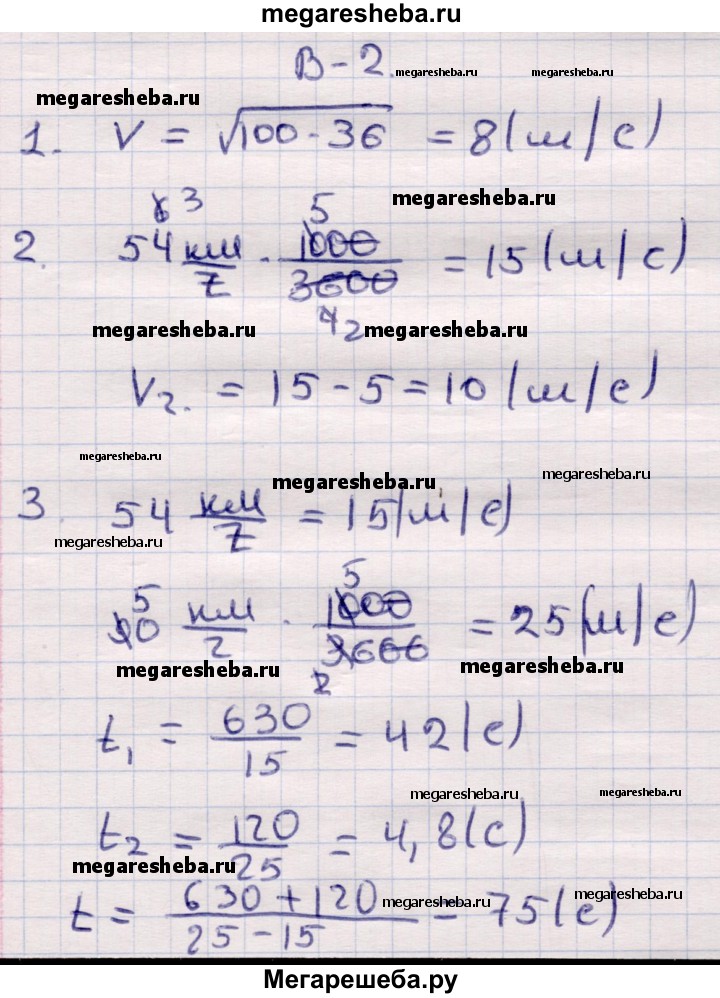 megaresheba.ru
В-2. megaresheba.ru megaresheba.ru
megaresheba.ru
1. V = √100-36 = 8(м/с)
6 3 5 megaresheba.ru
2. 54 км/ч · 1000/3600 = 15(м/с)
megaresheba.ru 4 2 megaresheba.ru
V2. = 15-5=10(м/с)
megaresheba.ru megaresheba.ru megaresheba.ru
3. 54 км/ч = 15(м/с)
megaresheba.ru
5 5
90 км/ч · 1000/3600 = 25(м/с)
megaresheba.ru 2 megaresheba.ru
t1 = 630/15 = 42(с)
megaresheba.ru megaresheba.ru
t2 = 120/25 = 4,8(с)
megaresheba.ru
t = 630+120/25-15 = 75(с)
megaresheba.ru megaresheba.ru
Мегарешеба.ру